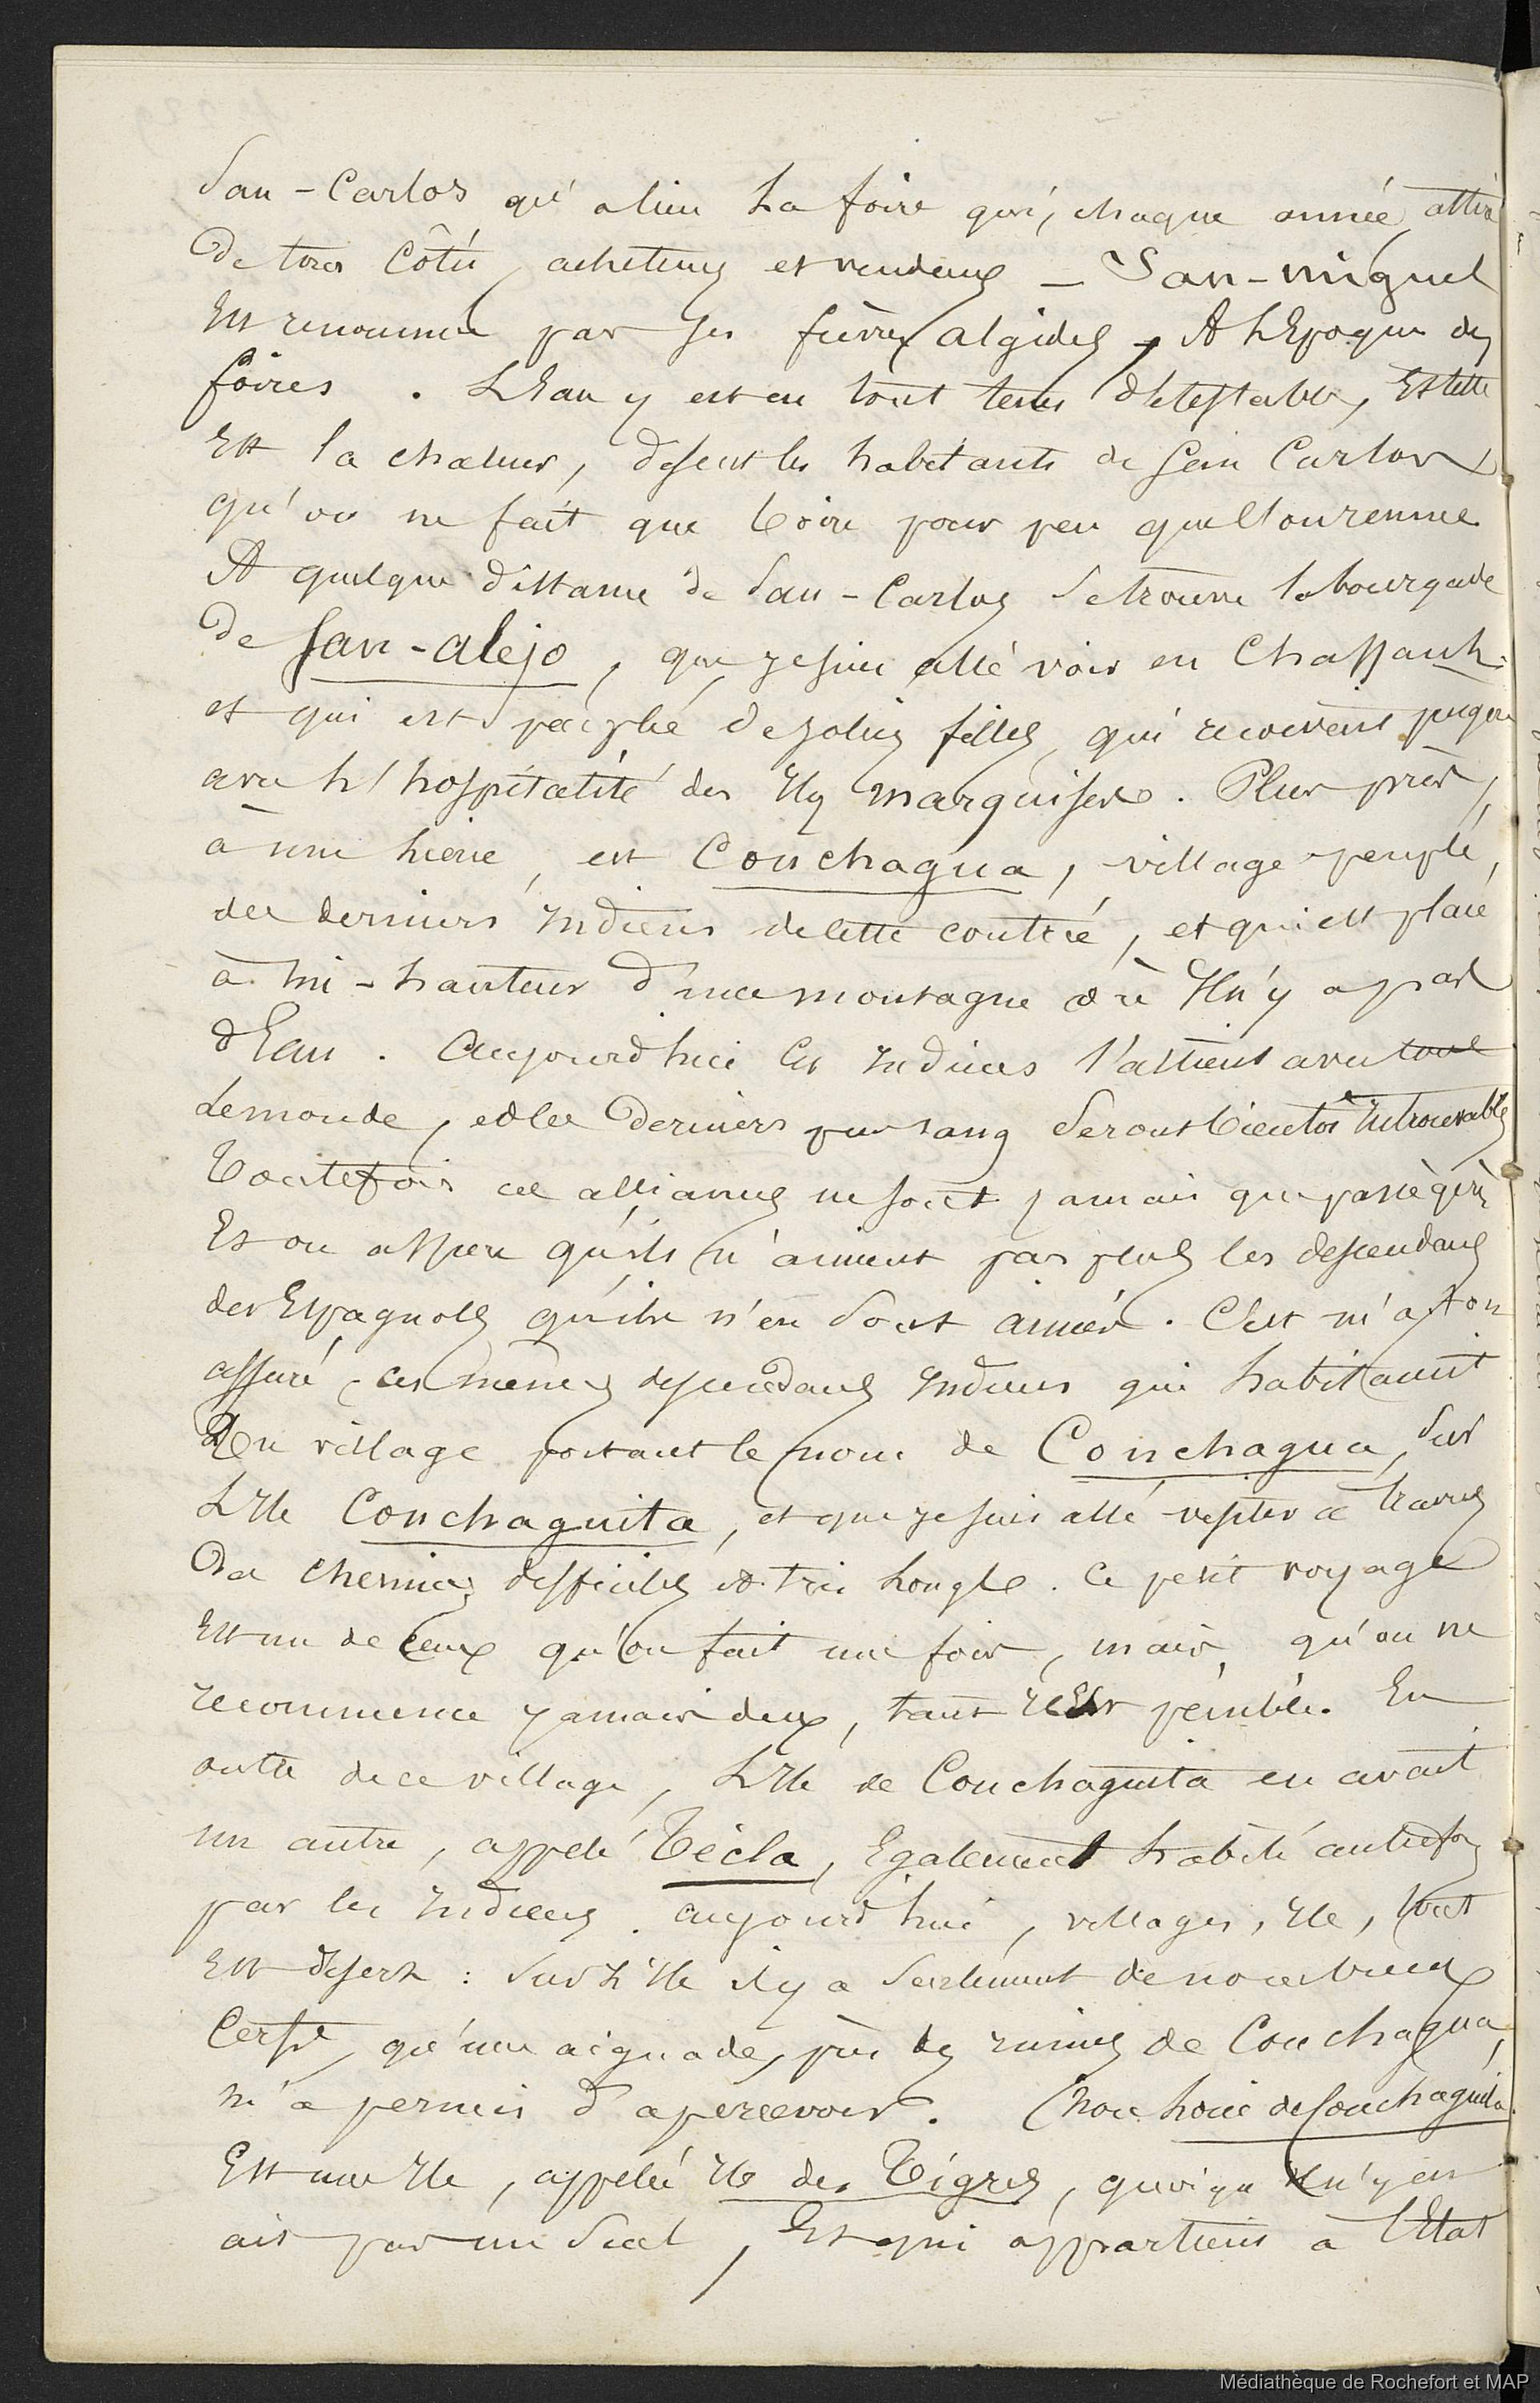 San-Carlos qu'a lieu La foire qui, chaque année, attire
De tous Côtés, acheteurs et vendeurs — San-miguel
Est renommée par ses fièvres algides, A L'Epoque des
foires. L'Eau y est en tout tems détestable, Et telle
Est la chaleur, disent les habitants de San Carlos
qu'on ne fait que boire pour peu que l'on remue.
A quelque distance de San-Carlos se trouve la bourgade
De San-alejo, que je suis allé voir en Chassant
et qui est peuplé de jolies filles, qui reçoivent
avec L'hospitalité des Iles marquises. Plus près,
à une lieue, est Conchagua, village peuplé,
des derniers Indiens de cette contrée, et qui est placé
à mi-hauteur d'une montagne où Il n'y a pas
d'Eau. Aujourd'hui les Indiens s'allient avec tout
Le monde, et les Derniers pur sang Seront bientôt Introuvables
Toutefois ces alliances ne sont jamais que passagères
Et on assure qu'ils n'aiment pas plus les descendans
des Espagnols qu'ils n'en sont aimés. C'est m'a-t-on
assuré, ces mêmes descendans Indiens qui habitaient
Un village portant le nom de Conchagua, Sur
L'Ile Conchaguita, et que je suis allé visiter à travers
Des Chemins difficiles et très longs. Ce petit voyage
Est un de ceux qu'on fait une fois, mais, qu'on ne
recommence jamais deux, tant Il Est pénible. En
outre de ce village, L'Ile de Conchaguita en avait
un autre, appelé Técla, Egalement habité autrefois
par les Indiens. aujourd'hui, villages, Ile, tout
Est désert : Sur L'Ile il y a Seulement de nombreux
Cerfs, qu'une aiguade, près des ruines de Conchagua,
m'a permis d'apercevoir. de Conchaguita
Est une Ile, appelée Ile des Tigres, quoiqu'Il n'y en
ait pas un Seul, Et qui appartient à l'Etat
Médiathèque de Rochefort et MAP